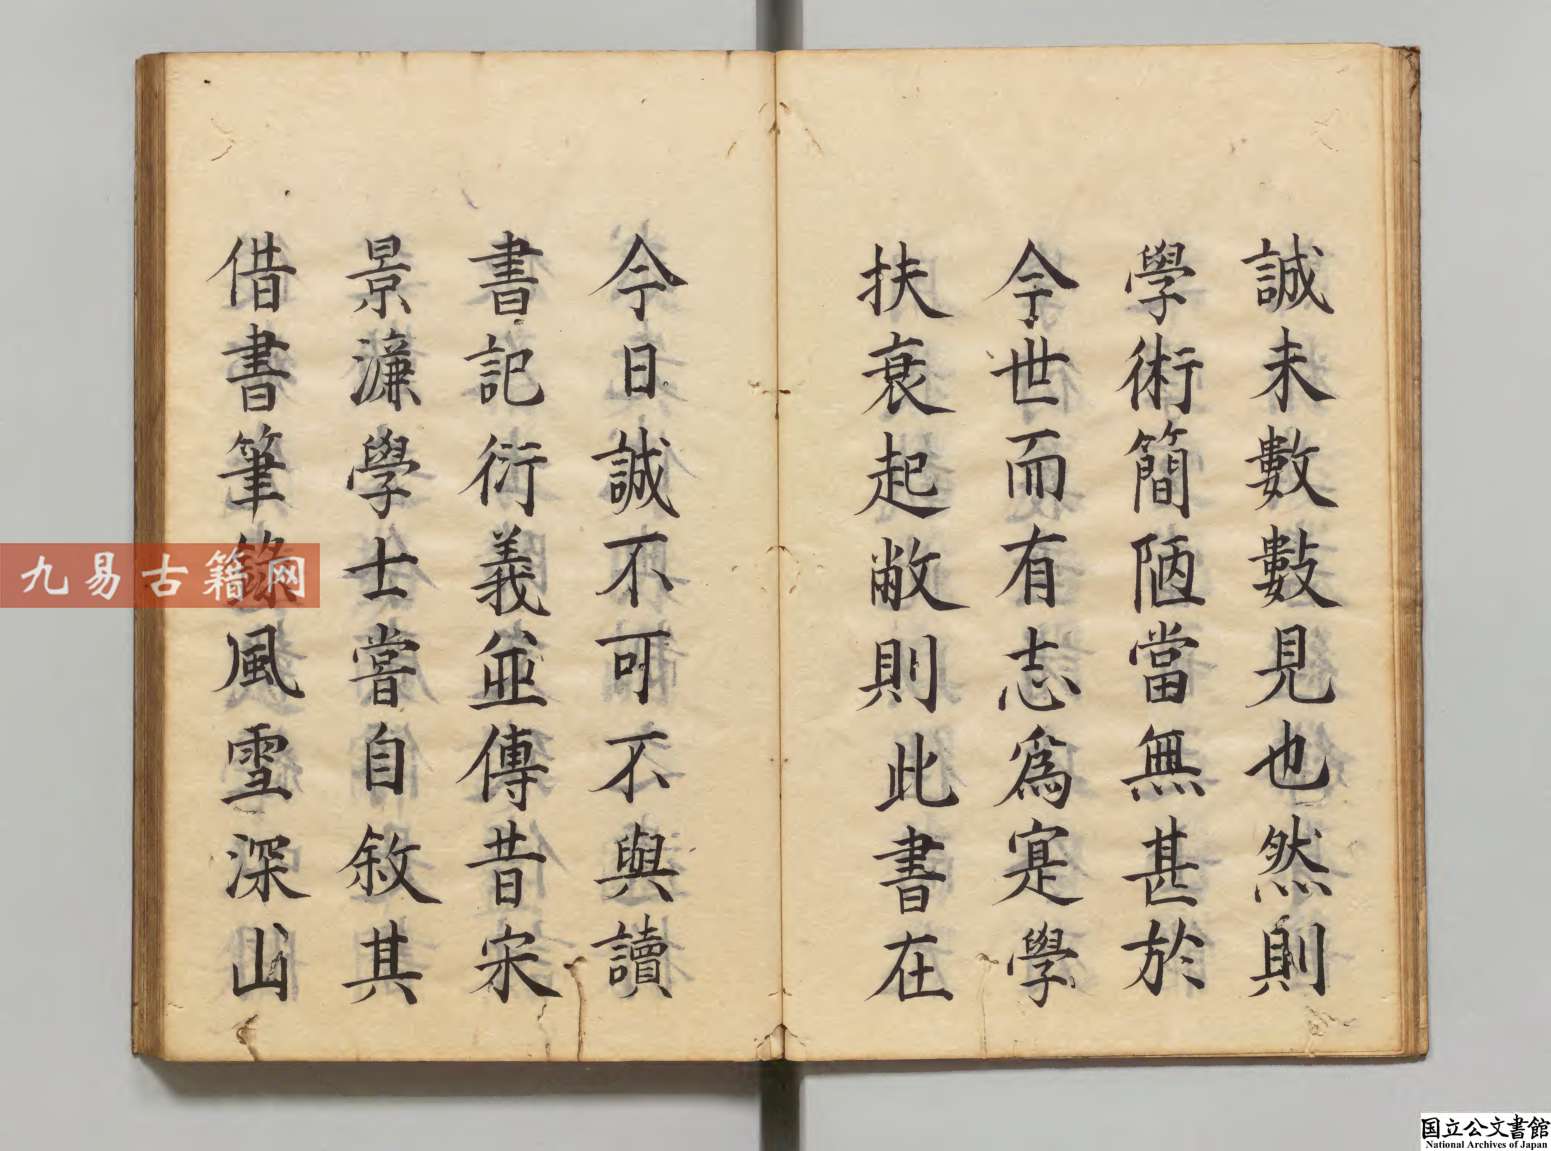 誠未數數見也然則
學術簡陋當無甚於
今世而有志爲寔學
扶衰起敝則此書在
今日誠不可不與讀
書記衍義並傳昔宋
景濂學士嘗自敘其
借書筆錄風雪深山
九易古籍网
国立公文書館
National Archives of Japan